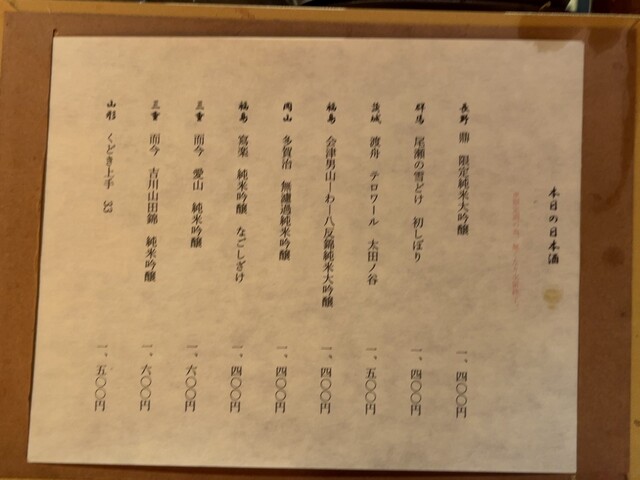 本日の日本酒
長野 鼎 限定純米大吟醸 一、四〇〇円
群馬 尾瀬の雪どけ 初しぼり 一、四〇〇円
茨城 渡舟 テロワール 太田ノ谷 一、五〇〇円
福島 会津男山ーわー八反錦純米大吟醸 一、四〇〇円
岡山 多賀治 無濾過純米吟醸 一、四〇〇円
福島 寫楽 純米吟醸 なごしざけ 一、四〇〇円
三重 而今 愛山 純米吟醸 一、六〇〇円
三重 而今 吉川山田錦 純米吟醸 一、六〇〇円
山形 くどき上手 33 一、五〇〇円